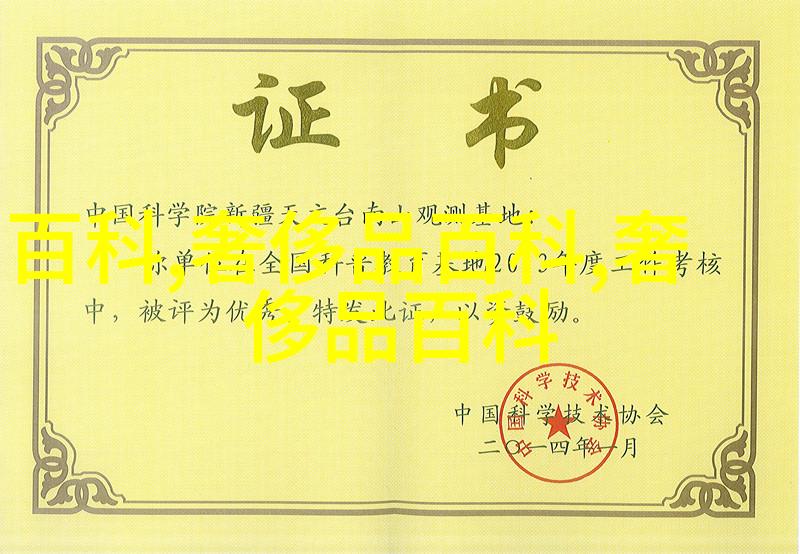 证 书
中国科学院新疆天文台南山观测基地：
百科,奢侈品百科,奢
你单 全国科学教育基地2013年度工作考核
侈品百科
中，被评为优秀，特发此证，以资鼓励。
中国科学技术协会
中国科学技术协会
二〇一四年一月